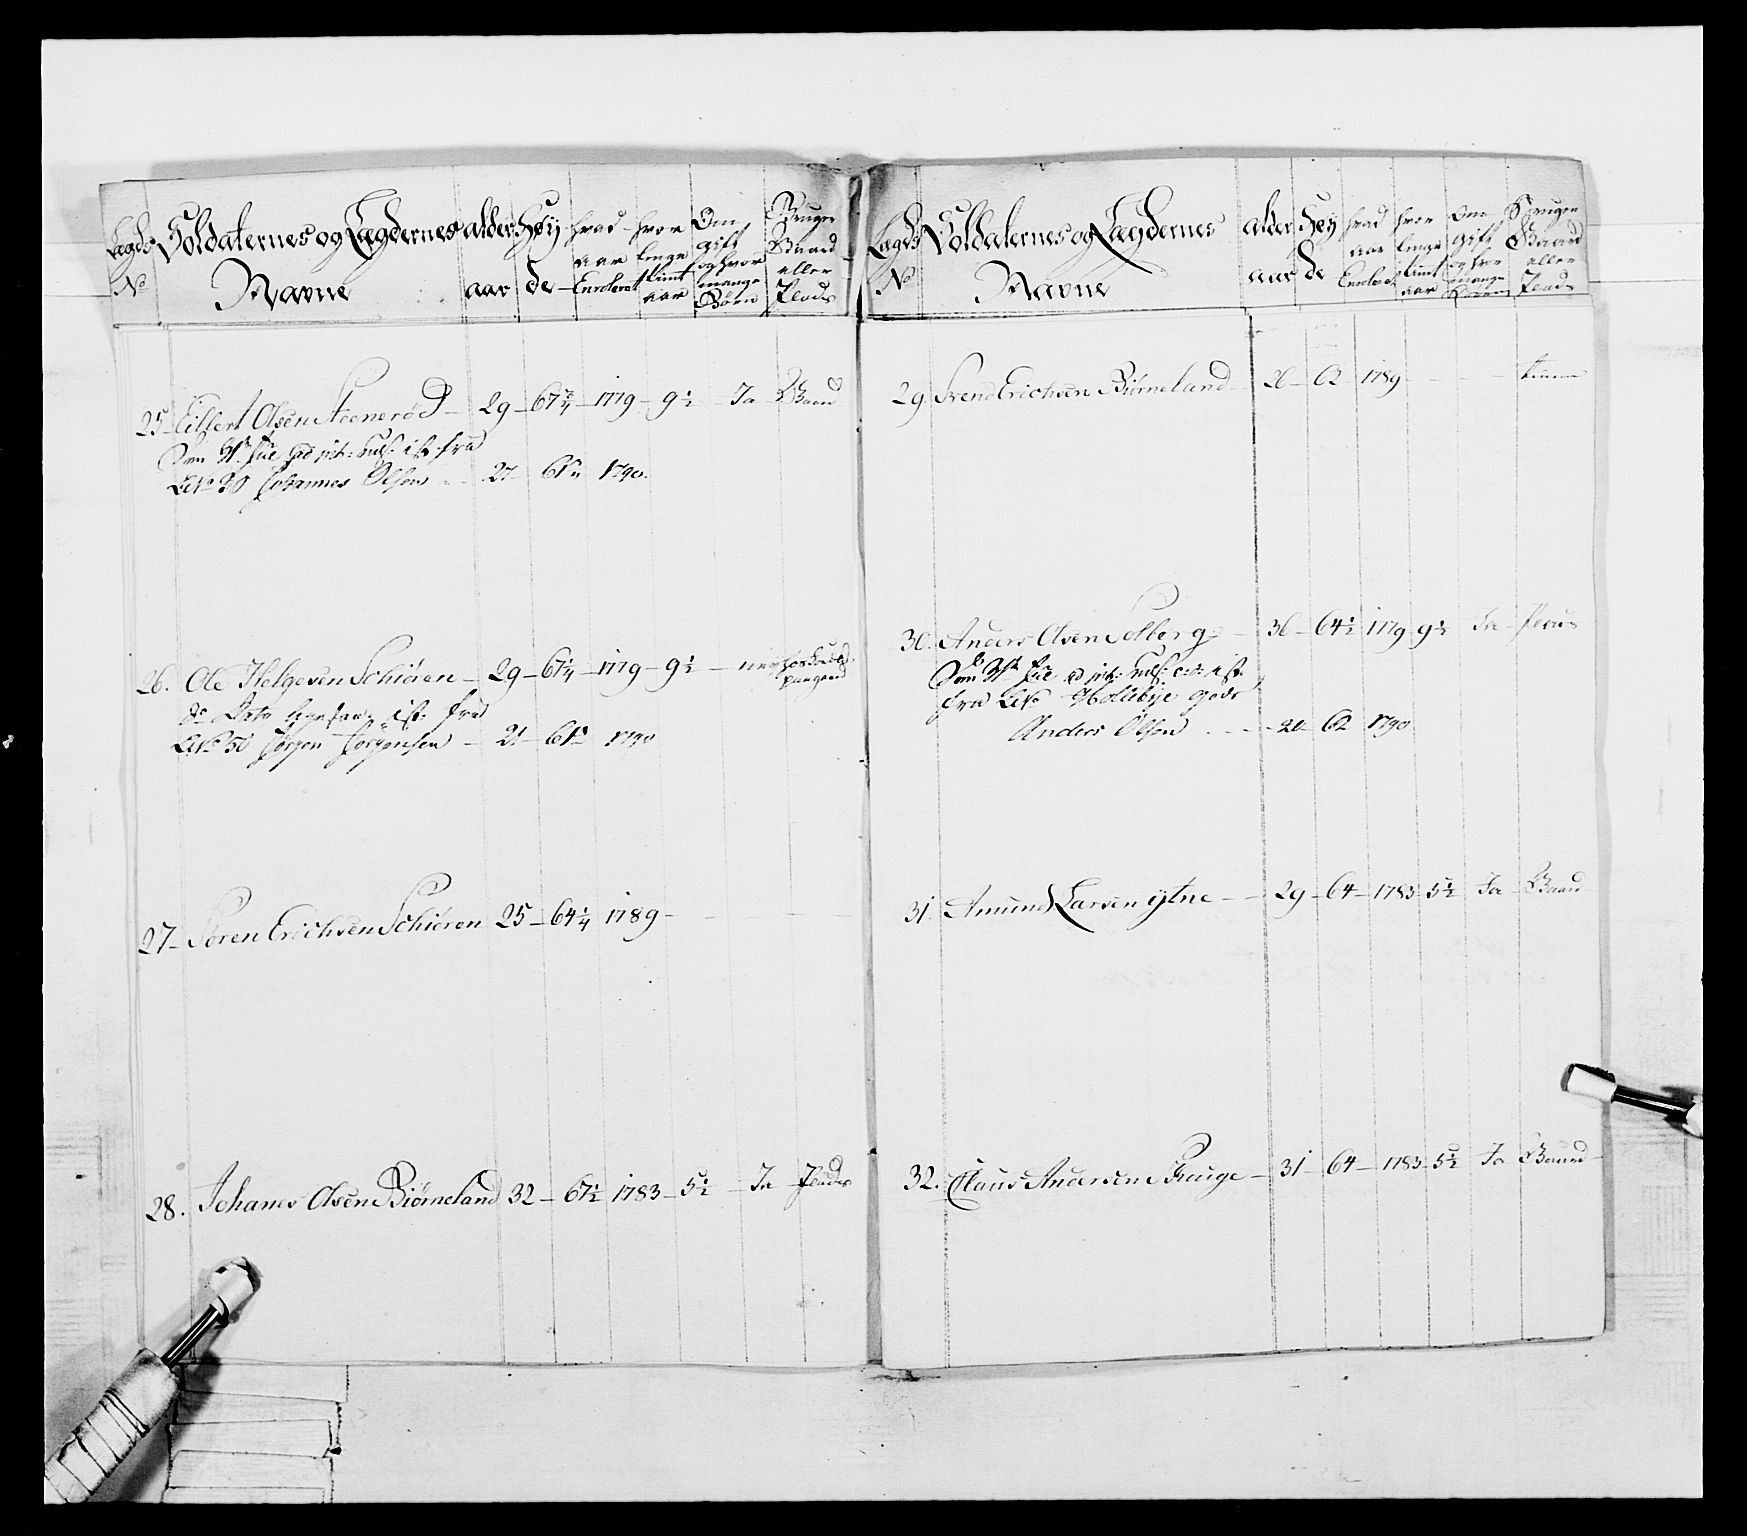 Lægds No
Soldaternes og Lægdernes Navne
alder aar
Høyde
hvad aar Enroleret
hvor lenge tiint aar
Om gift og hvor mange Børn
Bruger Gaard eller Plads
25 Eilert Olsen Steenerød – 29 – 67 3/4 – 1779 – 9 1/2 – Ja – Gaard
fra
No 30 Johannes Olsen – 27 – 1790.
26. Ole Helgesen Schiøren – 29 – 67 1/4 – 1779 – 9 1/2 –
fra
No 50 Jørgen Jørgensen – 21 – 1790
27 – Søren Erichsen Schiøren 25 – 64 1/4 1789 –
28. Johanes Olsen Biørneland 32 – 67 1/2 1783 – 5 1/2 – Ja – Plads
Lægds No
Soldaternes og Lægdernes Navne
alder aar
Høyde
hvad aar Enroleret
hvor lenge tiint aar
Om gift og hvor mange Børn
Bruger Gaard eller Plads
29. Svend Erichsen Biørneland – 26 – 62 1789 – –
30. Anders Olsen Solberg – 36 – 64 1/2 1779 – 9 1/2 Ja – Plads
fra No
Anders Olsen – – – 62 1790
31. Amund Larsen ytne – – 29 – 64 – 1783 – 5 1/2 Ja – Gaard
32. Claus Andersen Hauge – 31 – 64 – 1783 – 5 1/2 Ja Gaard –